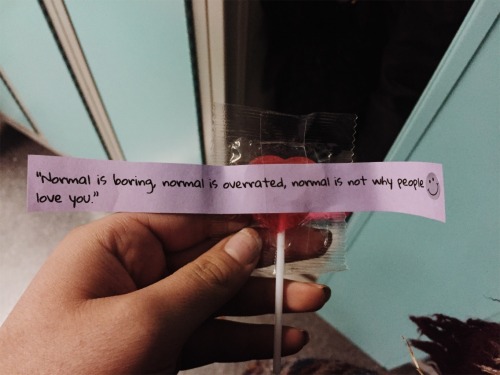 "Normal is boring, normal is overrated, normal is not why people
love you."